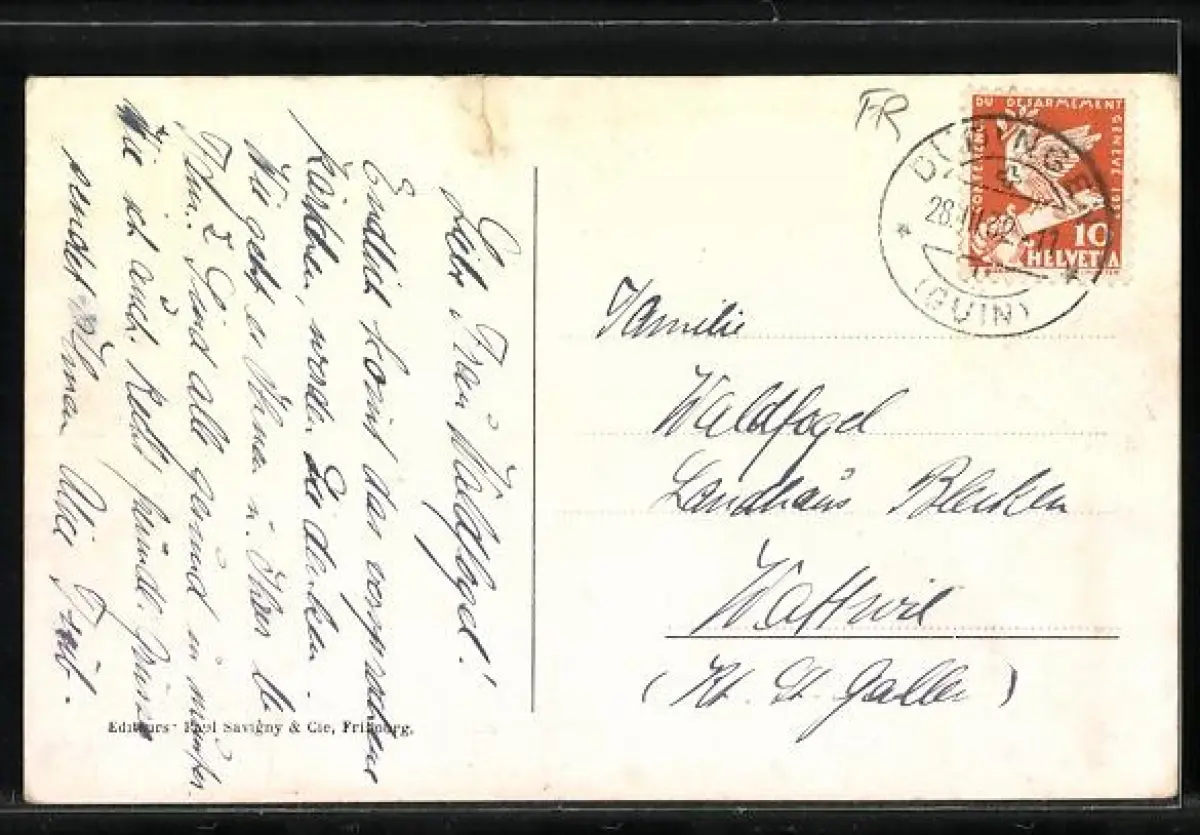 Liebe Frau Waldfogel!
Endlich kommt das versprochene
Kärtchen, werden Sie denken.
Wie geht es Ihnen u. Ihrer lb.
Sind alle gesund u. munter
wie ich auch. Recht freundl. Grüsse
sendet Ihnen Alice
Editeurs: Paul Savigny & Cie, Fribourg.
FR
CONFERENCE DU DESARMEMENT GENEVE 1932
10
HELVETIA
DÜDINGEN
28.VII.32.-17
(GUIN)
Familie
Waldfogel
Landhaus Bleiken
Wattwil
(Kt. St. Gallen)